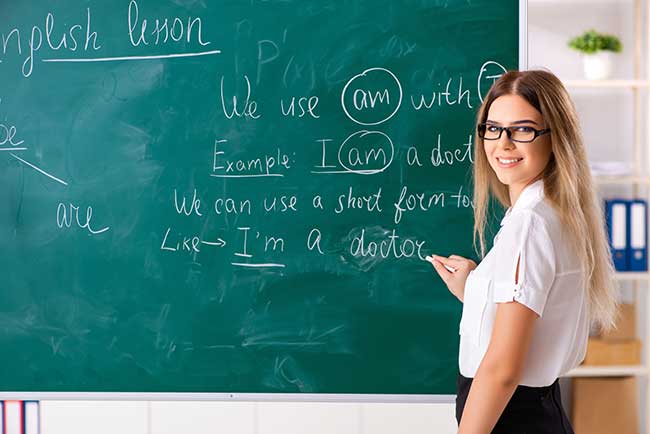 nglish lesson
We use am with I
be
Example: I am a doct
We can use a short form too
are
Like → I'm a doctor